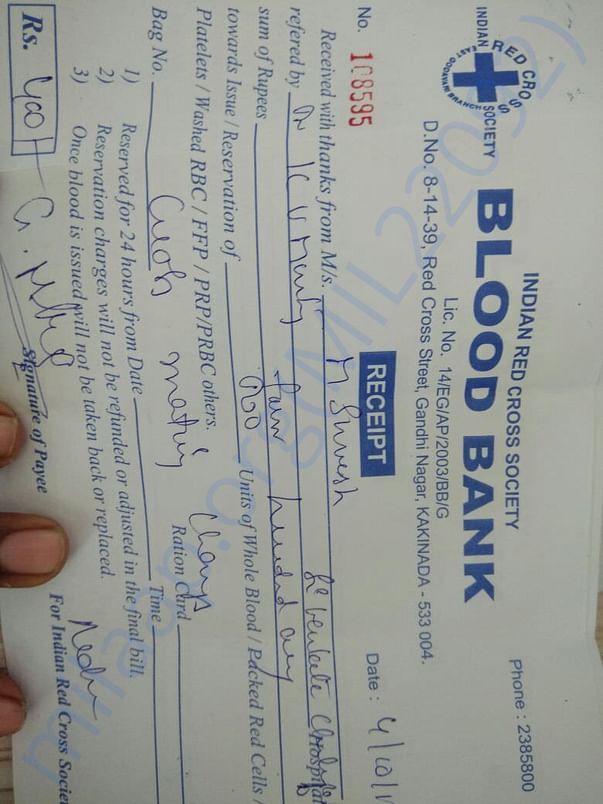 INDIAN RED CROSS SOCIETY
EAST GODAVARI BRANCH
INDIAN RED CROSS SOCIETY
Phone : 2385800
BLOOD BANK
Lic. No. 14/EG/AP/2003/BB/G
D.No. 8-14-39, Red Cross Street, Gandhi Nagar, KAKINADA - 533 004.
No. 108595
RECEIPT
Date : 4/10/1
Received with thanks from M/s. M Suresh
refered by Dr K V Murty Sri Venkata Hospital
sum of Rupees four hundred only
towards Issue / Reservation of Units of Whole Blood / Packed Red Cells /
Platelets / Washed RBC / FFP / PRP/PRBC others.
Bag No. Cross Ration Card
1) Reserved for 24 hours from Date Time
2) Reservation charges will not be refunded or adjusted in the final bill.
3) Once blood is issued will not be taken back or replaced.
Rs. 400/-
Signature of Payee
For Indian Red Cross Socie
milaap.org(MIL22032)